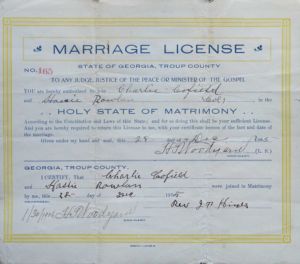 MARRIAGE LICENSE
STATE OF GEORGIA, TROUP COUNTY
NO. 165
TO ANY JUDGE, JUSTICE OF THE PEACE OR MINISTER OF THE GOSPEL
YOU are hereby authorized to join Charlie Cofield
and Rowlan Col, in the
HOLY STATE OF MATRIMONY
According to the Constitution and Laws of this State; and for so doing this shall be your sufficient License.
And you are hereby required to return this License to me, with your certificate hereon of the fact and date of the
marriage.
Given under my hand and seal, this 28 Dec
H T Woodyard (L. S.)
GEORGIA, TROUP COUNTY.
I CERTIFY, That Charlie Cofield
and Rowlan were joined to Matrimony
by me, this 28 day of Dec 190
Rev J M
H T Woodyard